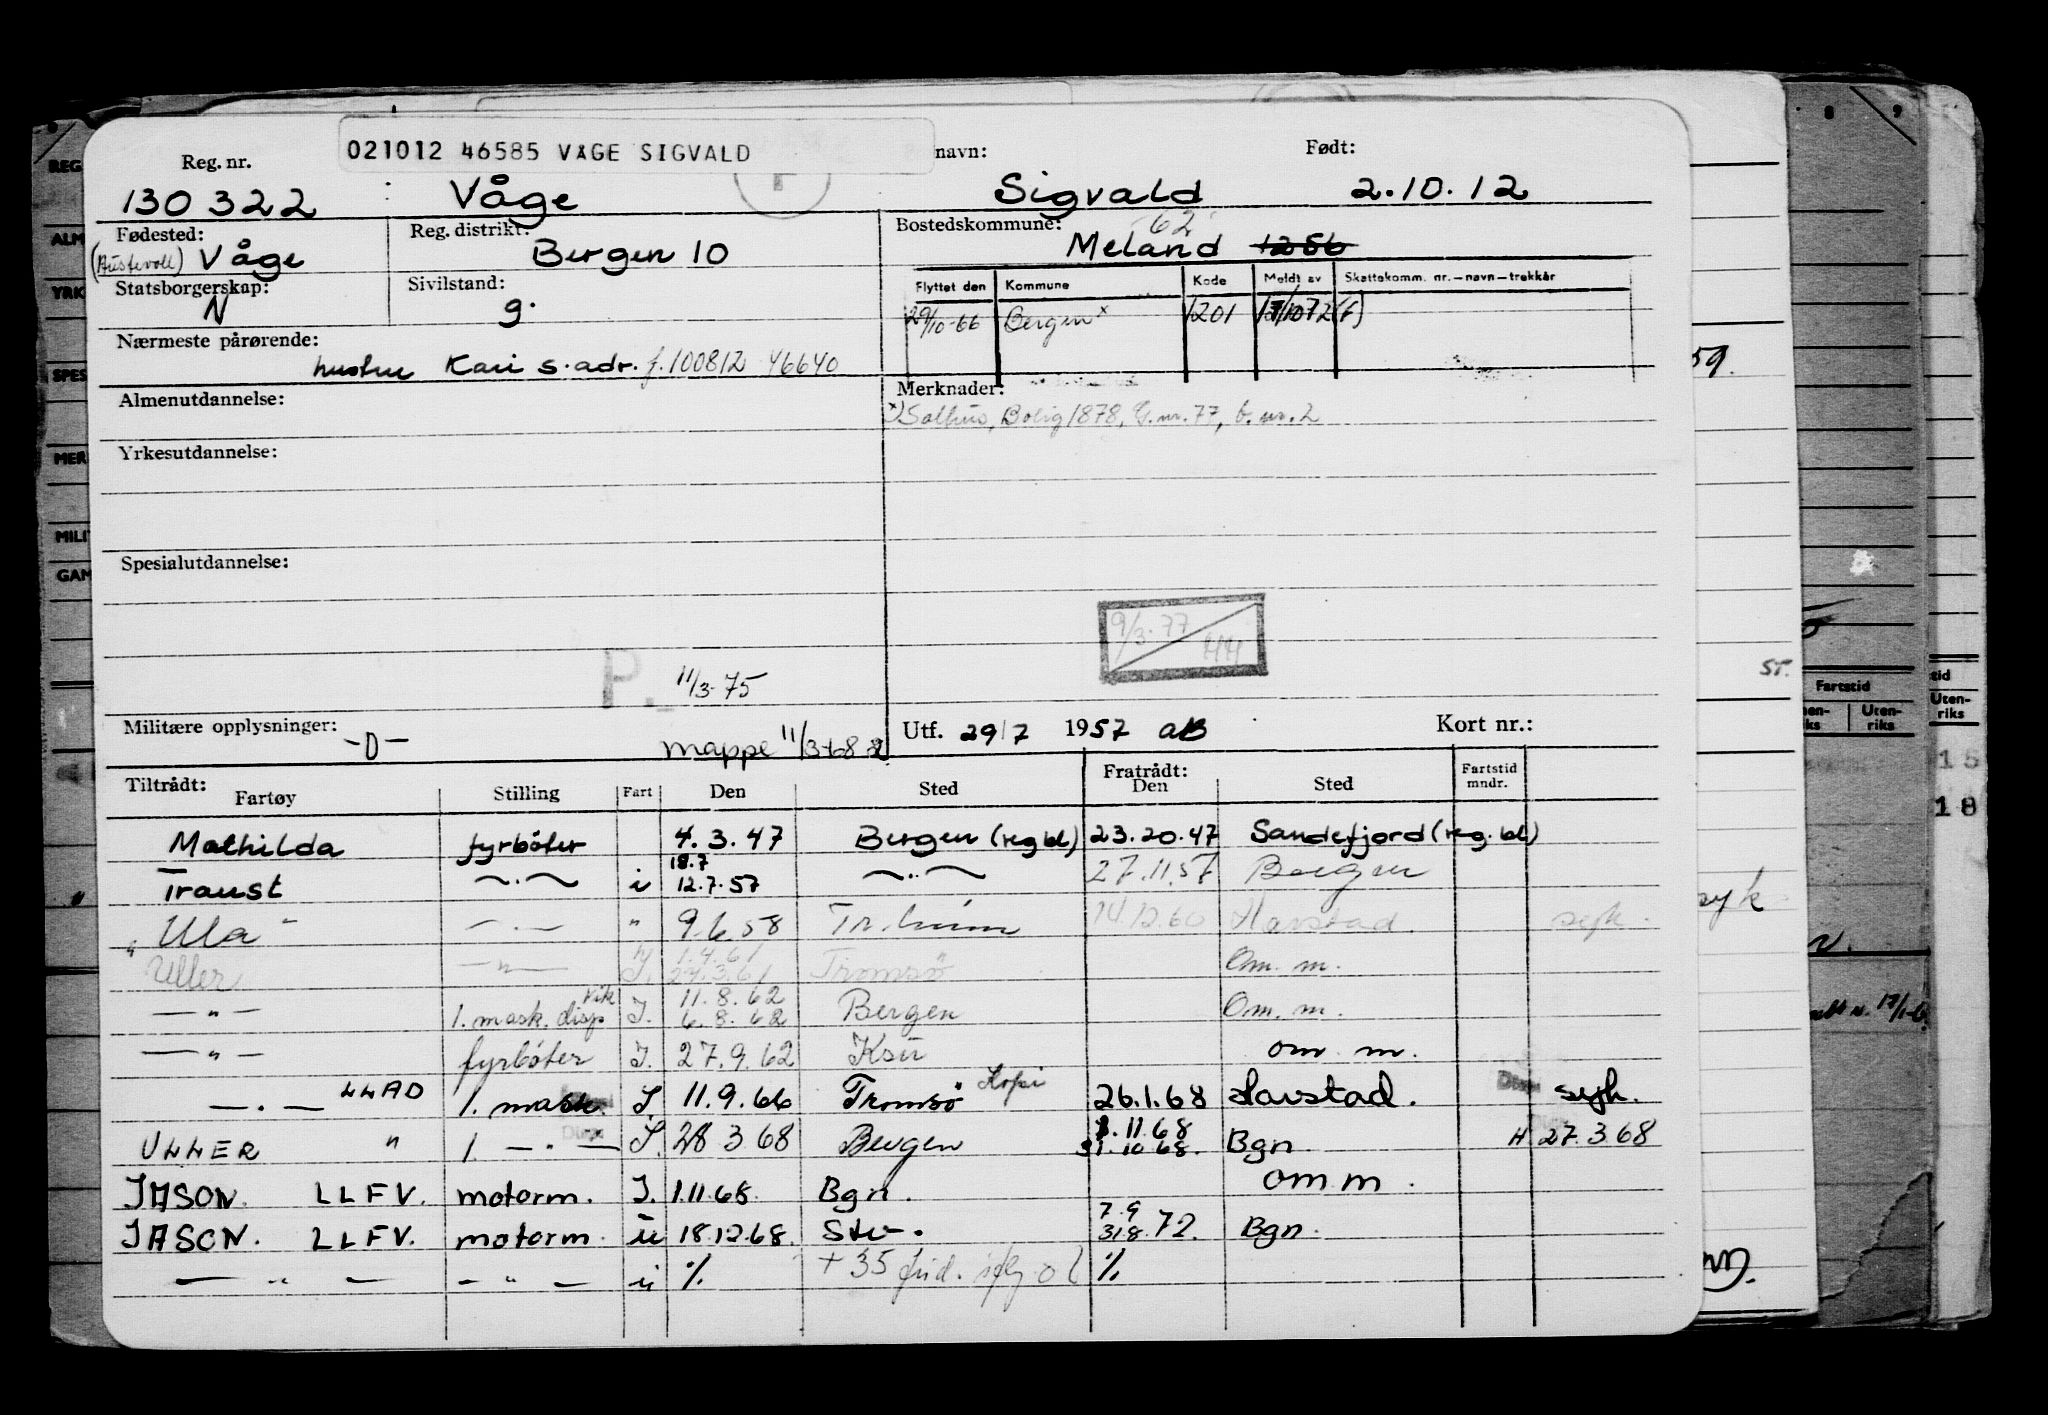 021012 46585 VÅGE SIGVALD
Reg. nr. navn: Født:
130 322 Våge Sigvald 2.10.12
Fødested: Reg. distrikt: Bostedskommune: 62
(Austevoll) Våge Bergen 10 Meland 1256
Statsborgerskap: Sivilstand:
N g.
Flyttet den Kommune Kode Meldt av Skattekomm. nr.—navn—trekkår
29/10-66 Bergen x 1201
Nærmeste pårørende:
hustru Kari s. adr. f. 100812 46640
Almenutdannelse: Merknader:
x) Salhus, Bolig 1878, G.nr. 77, b.nr. 2
Yrkesutdannelse:
Spesialutdannelse:
9/3-77
P. 11/3-75
Militære opplysninger: Utf. 29/7 1957 aB Kort nr.:
-0- mappe 11/3-68
Tiltrådt: Fratrådt: Fartstid
Fartøy Stilling Fart Den Sted Den Sted mndr.
Mathilda fyrbøter 4.3.47 Bergen (reg bl) 23.20.47 Sandefjord (reg. bl)
18.7
Traust —"— i 12.7.57 —"— 27.11.57 Bergen
"Ula" —"— " 9.6.58 Tr.heim 14.12.60 Harstad syk.
1.4.61
Uller —"— I. 27.3.61 Tromsø Om. m.
vik 11.8.62
—"— 1. mask. disp I. 6.8.62 Bergen Om. m.
—"— fyrbøter I. 27.9.62 Ksu om m.
—"— LLAD 1. mask. I. 11.9.66 Tromsø Kopi 26.1.68 Harstad. syk.
1.11.68
ULLER " 1. —"— I. 28 3.68 Bergen 31.10 68. Bgn H 27.3 68
JASON. LLFV. motorm. I. 1.11.68. Bgn. om m.
7.9
JASON. LLFV. motorm. u 18.12.68. Stv. 31.8.72. Bgn.
—"— —"— u % + 35 %